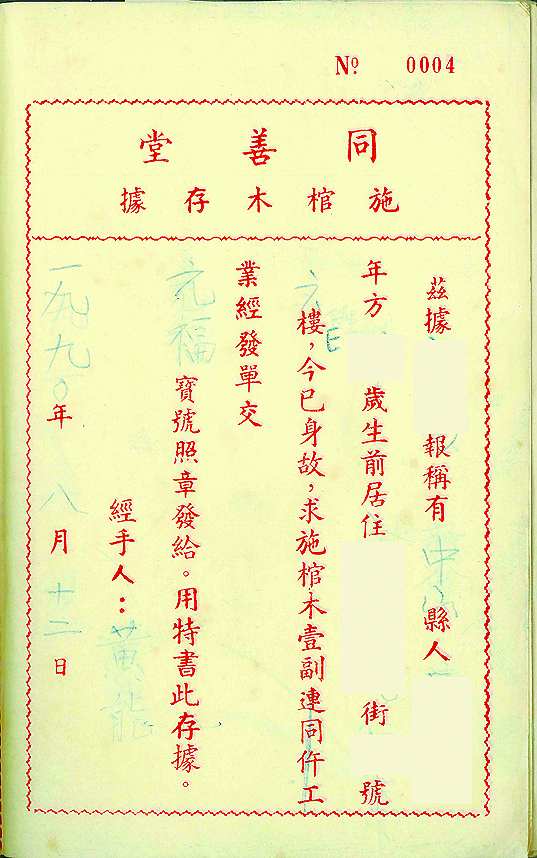 № 0004
同善堂
施棺木存據
茲據 報稱有中山縣人
年方 歲生前居住 街 號
六 E 樓,今已身故,求施棺木壹副連同仵工
業經發單交
元福 寶號照章發給。用特書此存據。
經手人:黃龍
一九九〇年 八月十二日